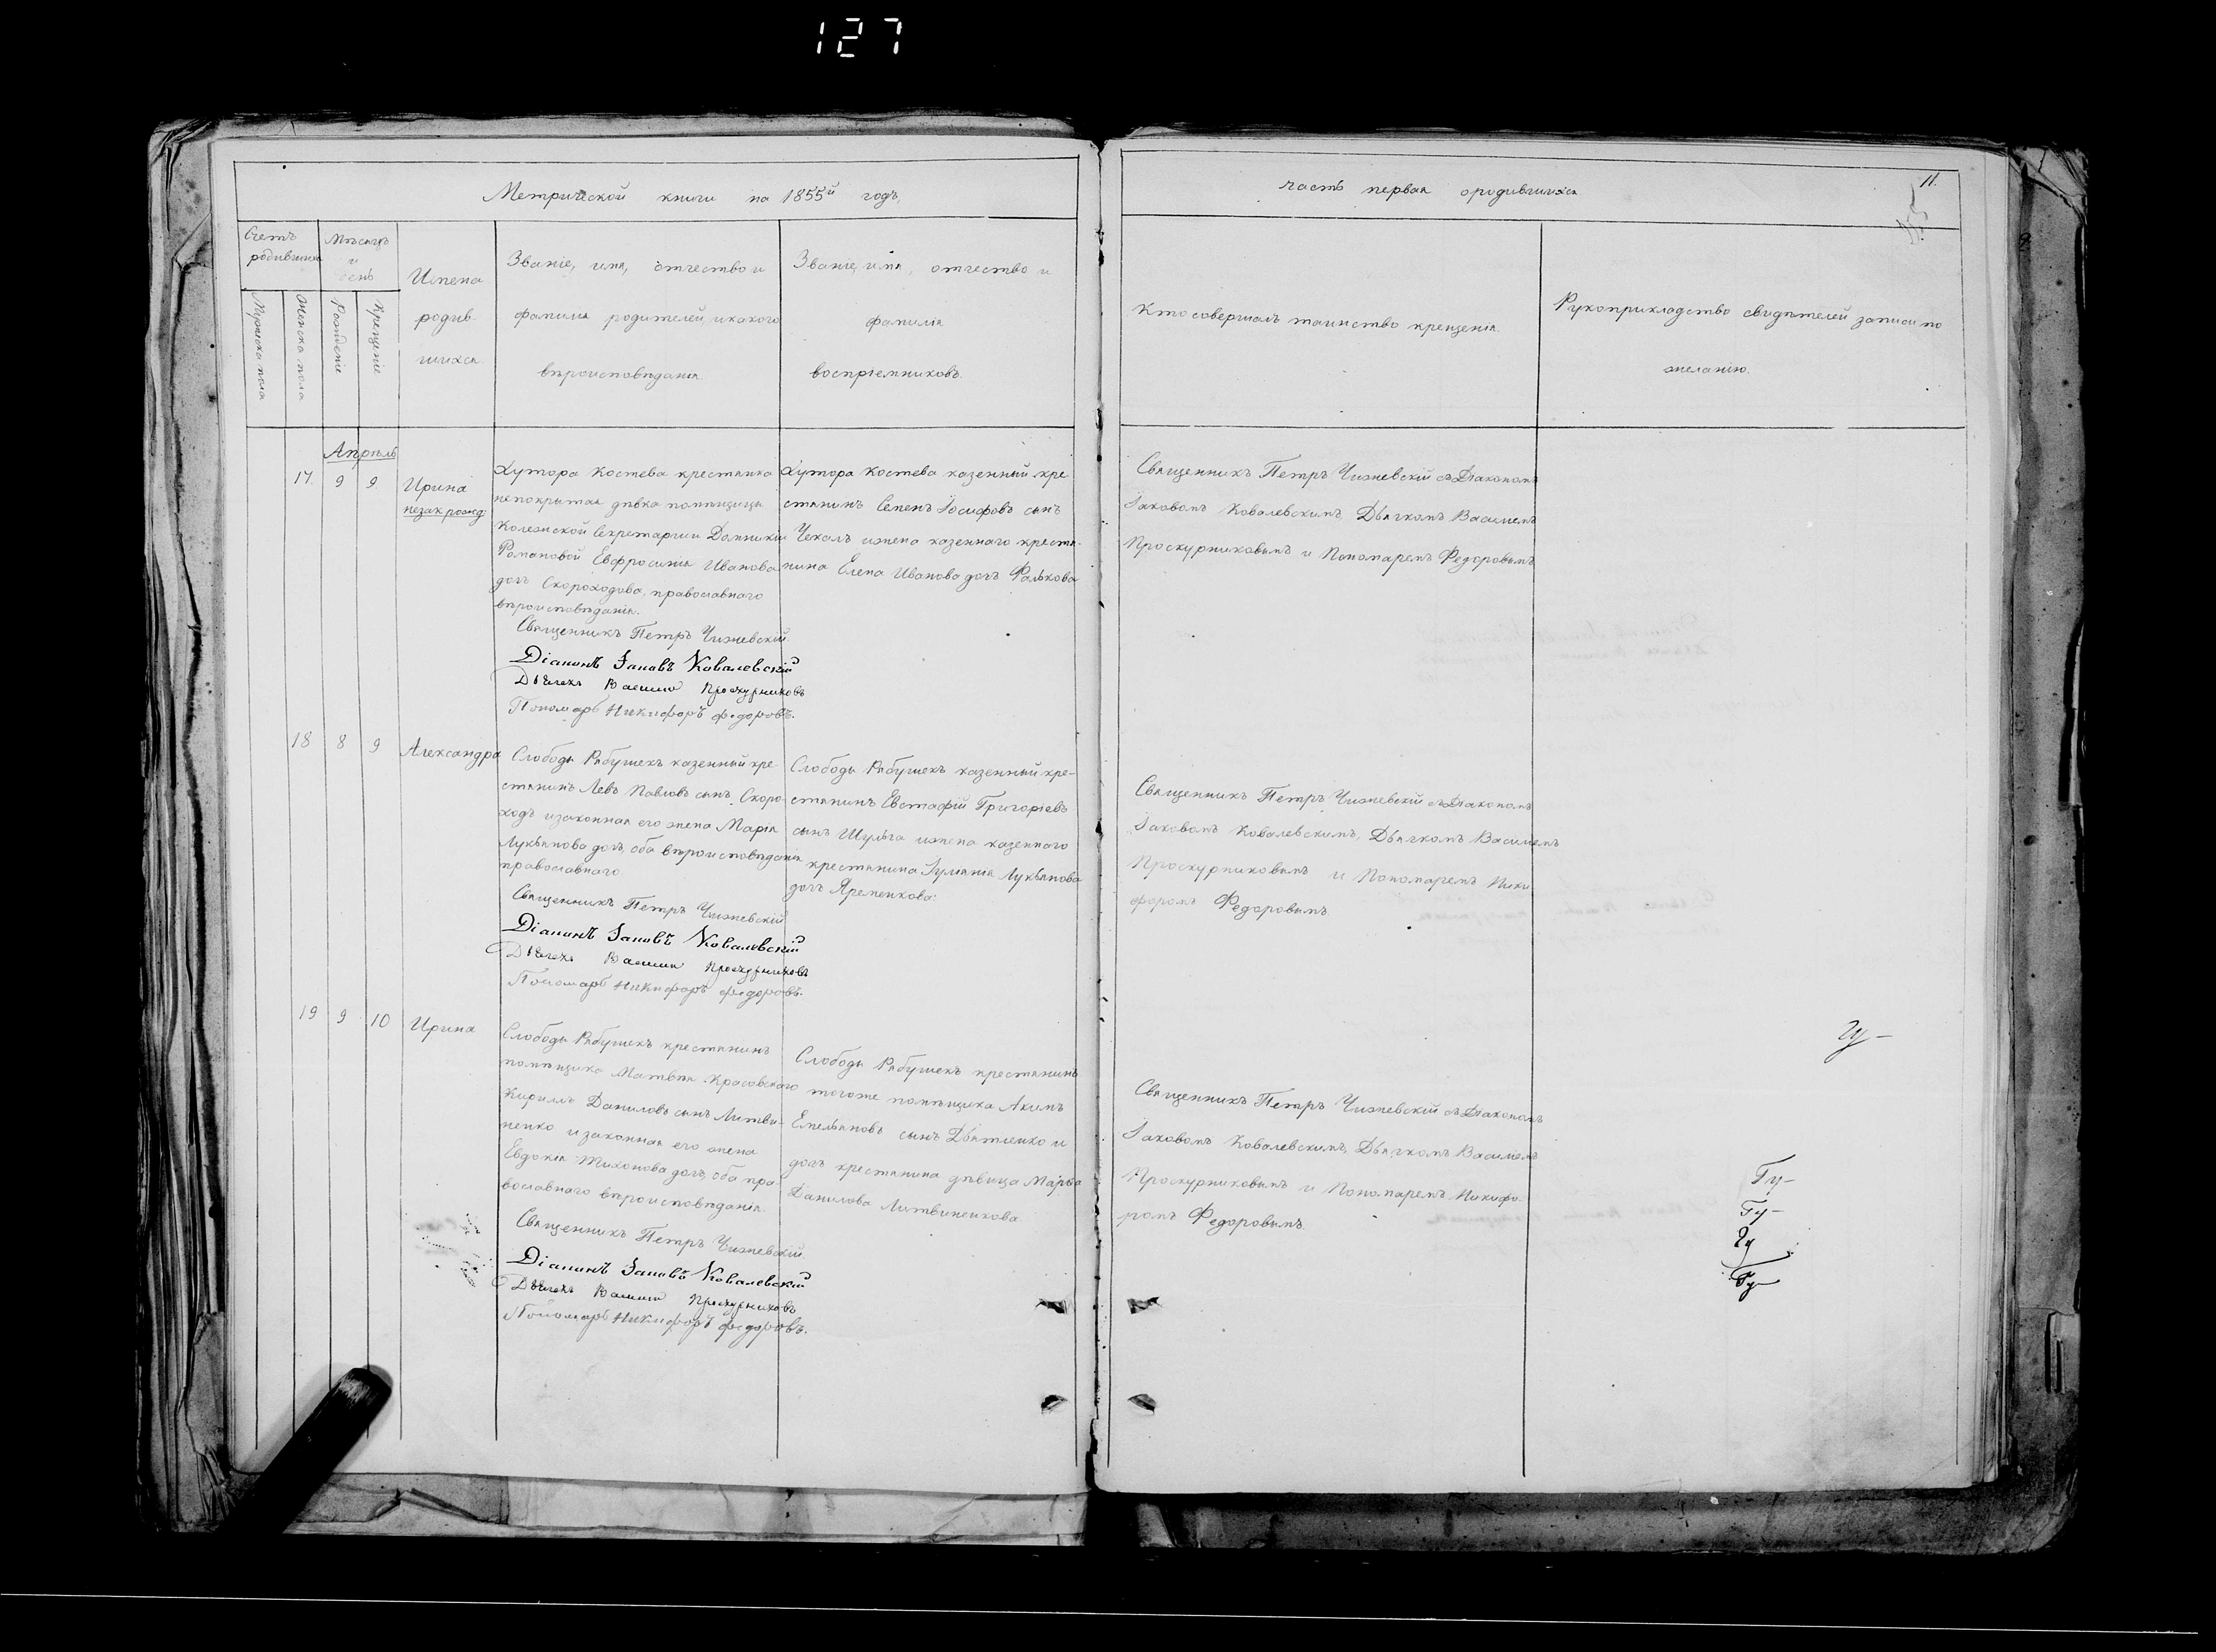 127
Метрической книги на 1855й годъ,
Счетъ родившихся
Мѣсяцъ и день
Мужеска пола
Женска пола
Рожденіе
Крещеніе
Имена
родив-
шихся.
Званіе, имя, отчество и
фамилія родителей, и какого
вѣроисповѣданія.
Званіе, имя, отчество и
фамилія
воспріемниковъ.
Апрѣль
17. 9 9
Ирина
незак рожд:
Хутора Костева крестьянка
непокрытая дѣвка помѣщицы
Колежской Секретарши Домникіи
Романовой Евфросинія Иванова
дочь Скороходова, православнаго
вѣроисповѣданія.
Священникъ Петръ Чижевскій
Діаконъ Іаковъ Ковалевскій
Дьячекъ Василій Проскурниковъ
Пономарь Никифоръ Федоровъ.
Хутора Костева казенный кре-
стьянинъ Семенъ Іосифовъ сынъ
Чехалъ и жена казеннаго кресть-
янина Елена Иванова дочь Фалькова
18 8 9
Александра
Слободы Рябушекъ казенный кре-
стьянинъ Левъ Павловъ сынъ Скоро-
ходъ и законная его жена Марія
Лукьянова дочь, оба вѣроисповѣданія
православнаго
Священникъ Петръ Чижевскій
Діаконъ Іаковъ Ковалевскій
Дьячекъ Василій Проскурниковъ
Пономарь Никифоръ Федоровъ.
Слободы Рябушекъ казенный кре-
стьянинъ Евстафій Григоріевъ
сынъ Шульга и жена казеннаго
крестьянина Іуліанія Лукьянова
дочь Яременкова:
19 9 10
Ирина
Слободы Рябушекъ крестьянинъ
помѣщика Матвѣя Красовскаго
Кириллъ Даниловъ сынъ Литви-
ненко и законная его жена
Евдокія Тихонова дочь, оба пра-
вославнаго вѣроисповѣданія.
Священникъ Петръ Чижевскій.
Діаконъ Іаковъ Ковалевскій
Дьячекъ Василій Проскурниковъ
Пономарь Никифоръ Федоровъ.
Слободы Рябушекъ крестьянинъ
тогоже помѣщика Акимъ
Емельяновъ сынъ Дьятленко и
дочь крестьянина дѣвица Марѳа
Данилова Литвиненкова.
часть первая о родившихся
11.
Кто совершалъ таинство крещенія.
Рукоприкладство свидѣтелей записи по
желанію.
Священникъ Петръ Чижевскій съ Діакономъ
Іаковомъ Ковалевскимъ, Дьячкомъ Василіемъ
Проскурниковымъ и Пономаремъ Федоровымъ
Священникъ Петръ Чижевскій съ Діакономъ
Іаковомъ Ковалевскимъ, Дьячкомъ Василіемъ
Проскурниковымъ и Пономаремъ Ники-
форомъ Федоровымъ.
Священникъ Петръ Чижевскій съ Діакономъ
Іаковомъ Ковалевскимъ, Дьячкомъ Василіемъ
Проскурниковымъ и Пономаремъ Никифо-
ромъ Федоровымъ.